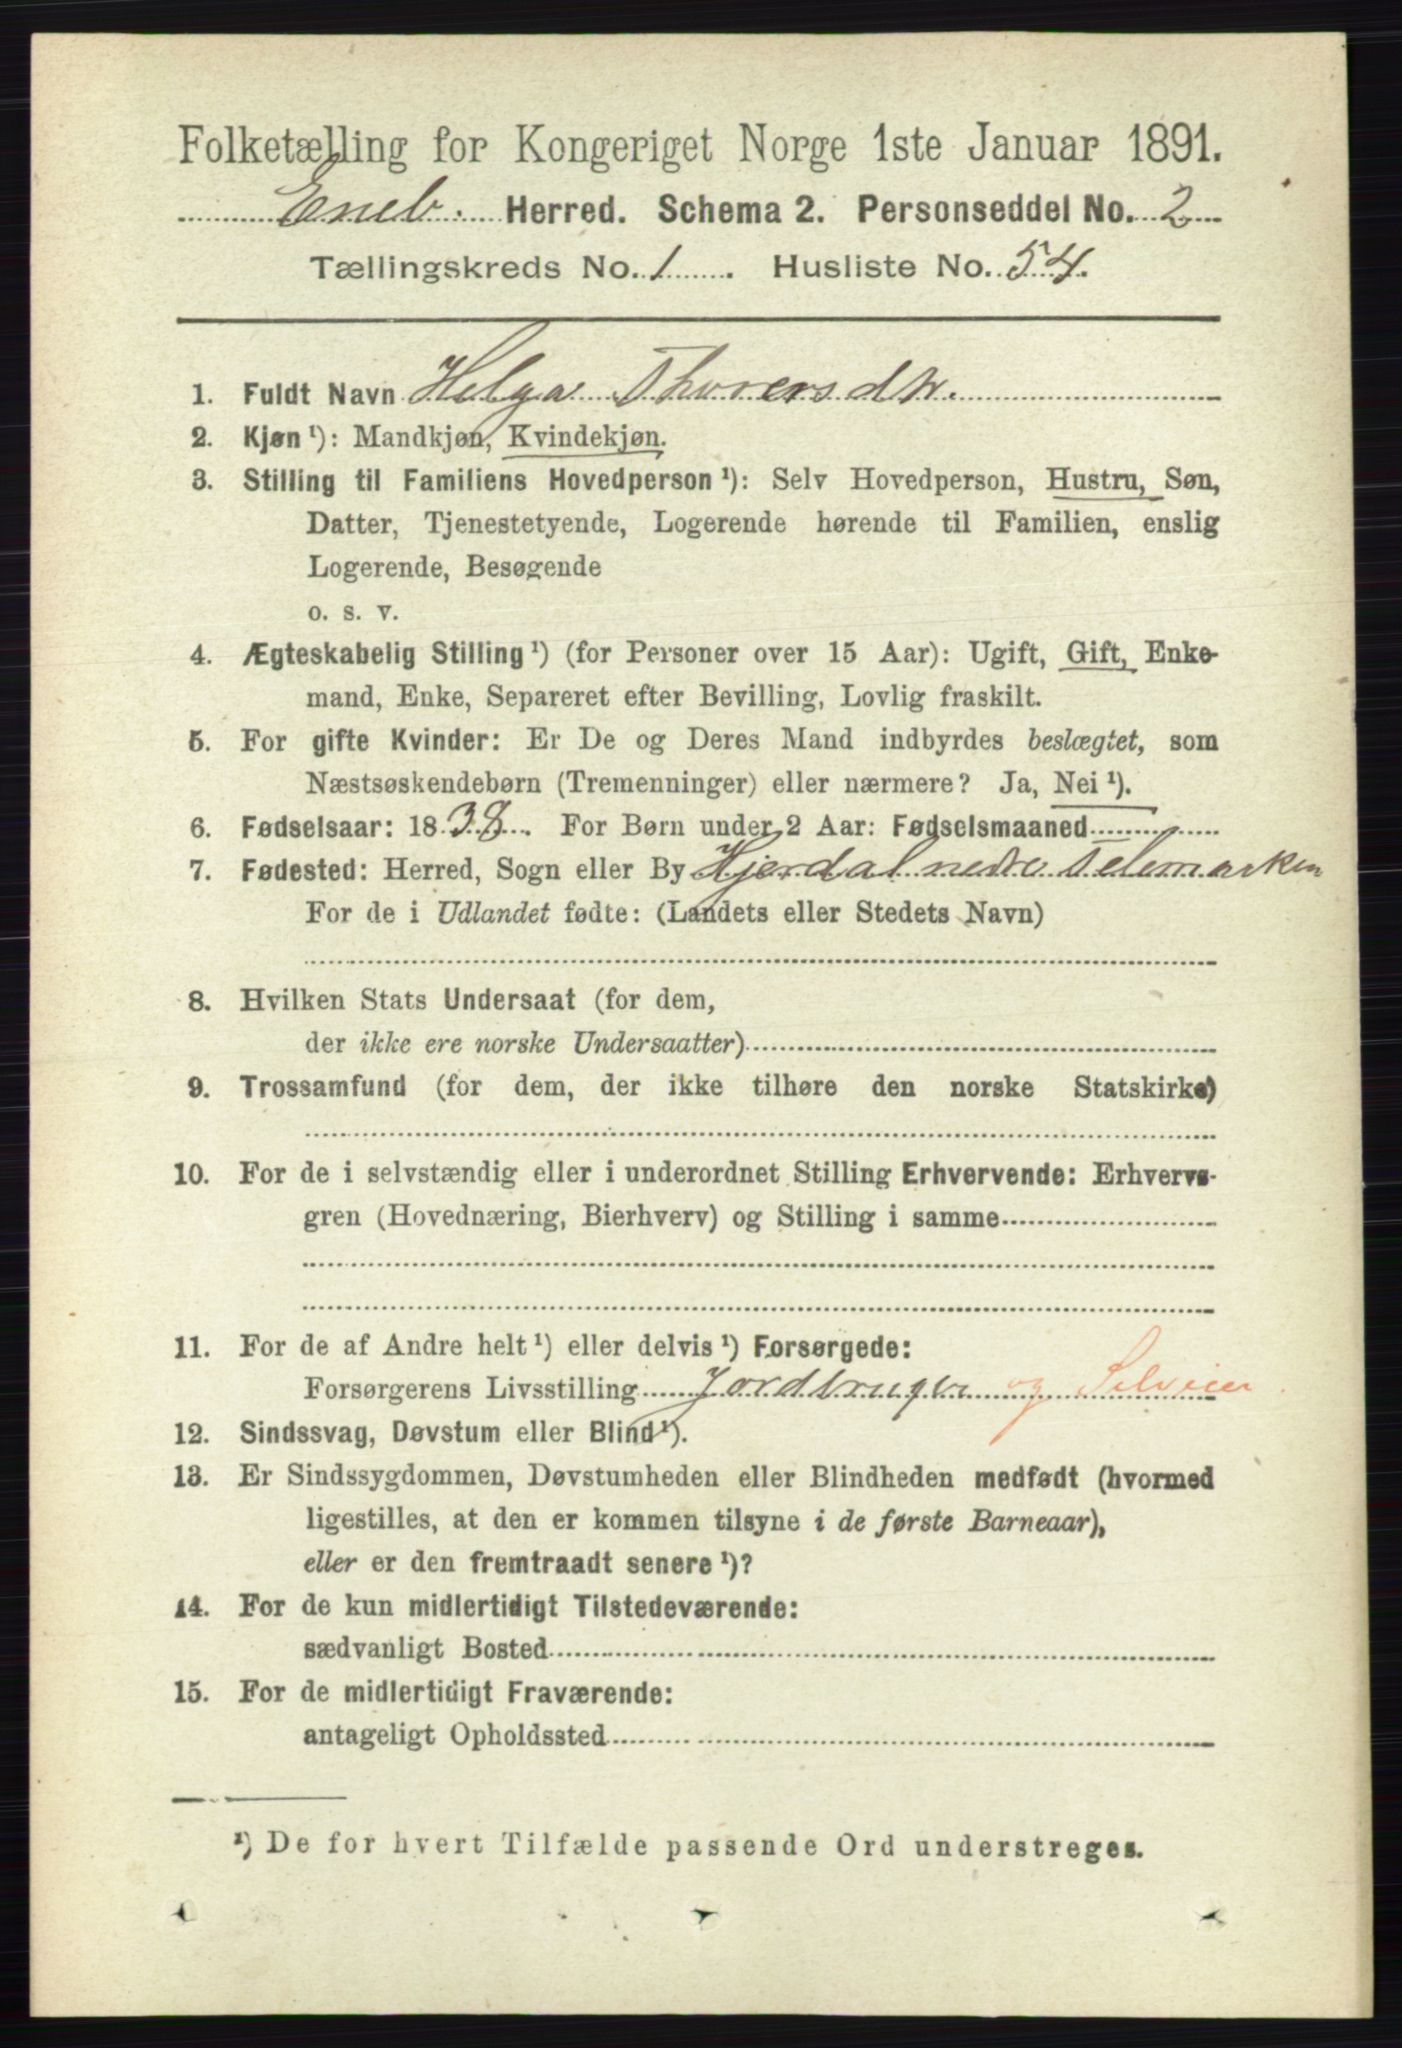 Folketælling for Kongeriget Norge 1ste Januar 1891.
Eneb. Herred. Schema 2. Personseddel No. 2
Tællingskreds No. 1. Husliste No. 54.
1. Fuldt Navn Helga Thorersdtr.
2. Kjøn¹): Mandkjøn, Kvindekjøn.
3. Stilling til Familiens Hovedperson¹): Selv Hovedperson, Hustru, Søn,
Datter, Tjenestetyende, Logerende hørende til Familien, enslig
Logerende, Besøgende
o. s. v.
4. Ægteskabelig Stilling¹) (for Personer over 15 Aar): Ugift, Gift, Enke-
mand, Enke, Separeret efter Bevilling, Lovlig fraskilt.
5. For gifte Kvinder: Er De og Deres Mand indbyrdes beslægtet, som
Næstsøskendebørn (Tremenninger) eller nærmere? Ja, Nei¹).
6. Fødselsaar: 1838. For Børn under 2 Aar: Fødselsmaaned
7. Fødested: Herred, Sogn eller By Hjerdal nedre Telemarken
For de i Udlandet fødte: (Landets eller Stedets Navn)
8. Hvilken Stats Undersaat (for dem,
der ikke ere norske Undersaatter)
9. Trossamfund (for dem, der ikke tilhøre den norske Statskirke)
10. For de i selvstændig eller i underordnet Stilling Erhvervende: Erhvervs-
gren (Hovednæring, Bierhverv) og Stilling i samme
11. For de af Andre helt¹) eller delvis¹) Forsørgede:
Forsørgerens Livsstilling Jordbruger og Selveier.
12. Sindssvag, Døvstum eller Blind¹).
13. Er Sindssygdommen, Døvstumheden eller Blindheden medfødt (hvormed
ligestilles, at den er kommen tilsyne i de første Barneaar),
eller er den fremtraadt senere¹)?
14. For de kun midlertidigt Tilstedeværende:
sædvanligt Bosted
15. For de midlertidigt Fraværende:
antageligt Opholdssted
¹) De for hvert Tilfælde passende Ord understreges.